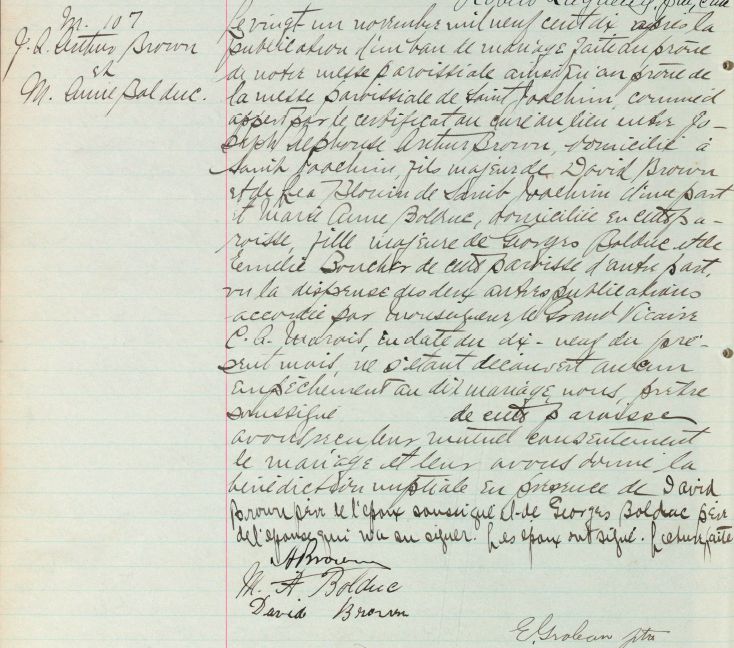 M. 107
J. A. Arthur Brown
et
M. Anne Bolduc.
Le vingt un novembre mil neuf cent dix après la
publication d'un ban de mariage faite au prône
de notre messe paroissiale ainsi qu'au prône de
la messe paroissiale de Saint Joachim, comme il
appert par le certificat du curé du lieu entre Jo-
seph Alphonse Arthur Brown, domicilié à
Saint Joachim, fils majeur de David Brown
et de Léa Blouin de Saint Joachim d'une part
et Marie Anne Bolduc, domiciliée en cette pa-
roisse, fille majeure de Georges Bolduc et de
Emélie Boucher de cette paroisse d'autre part,
vu la dispense des deux autres publications
accordée par monseigneur le Grand Vicaire
C. A. Marois, en date du dix-neuf du pré-
sent mois, ne s'étant découvert aucun
empêchement au dit mariage, nous, prêtre
soussigné de cette paroisse
avons reçu leur mutuel consentement
de mariage et leur avons donné la
bénédiction nuptiale en présence de David
Brown père de l'époux soussigné et de Georges Bolduc père
de l'épouse qui n'a su signer. Les époux ont signé. Lecture faite
A Brown
M. A. Bolduc
David Brown
ptre